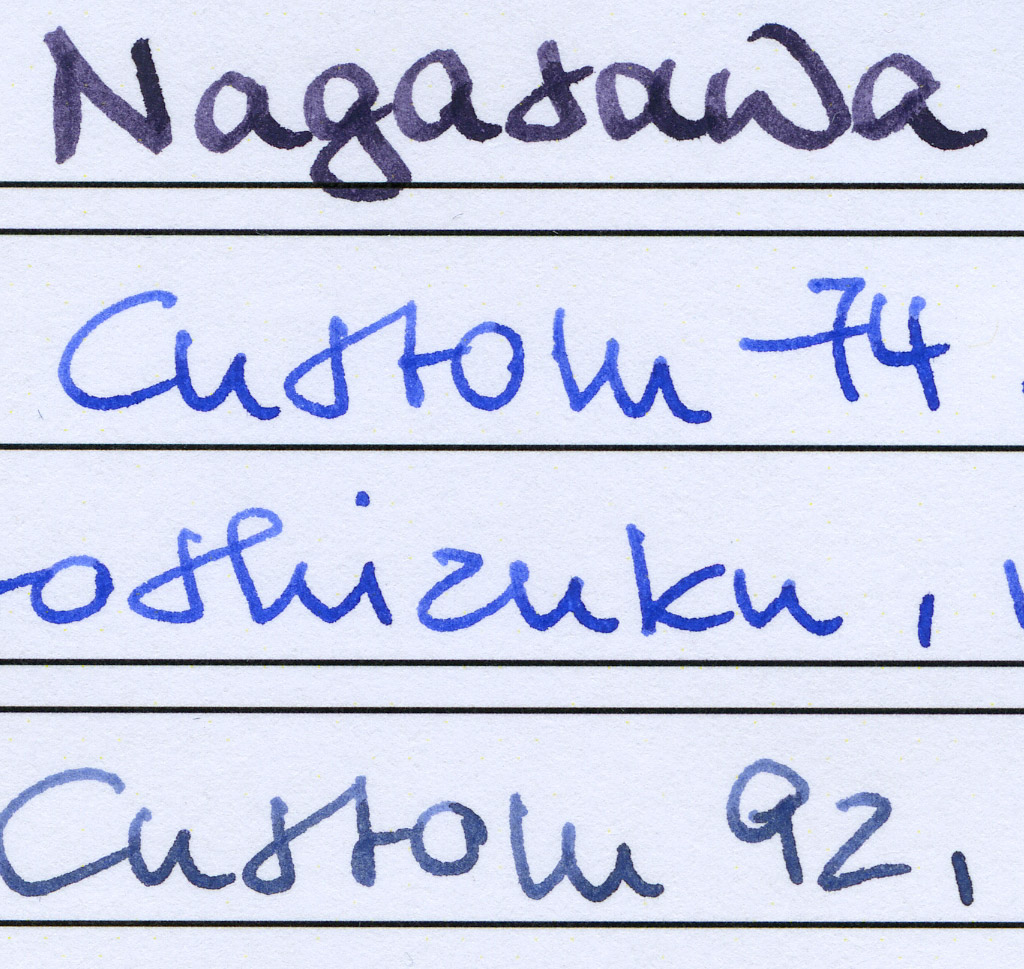 Nagasawa
Custom 74
oshizuku,
Custom 92,